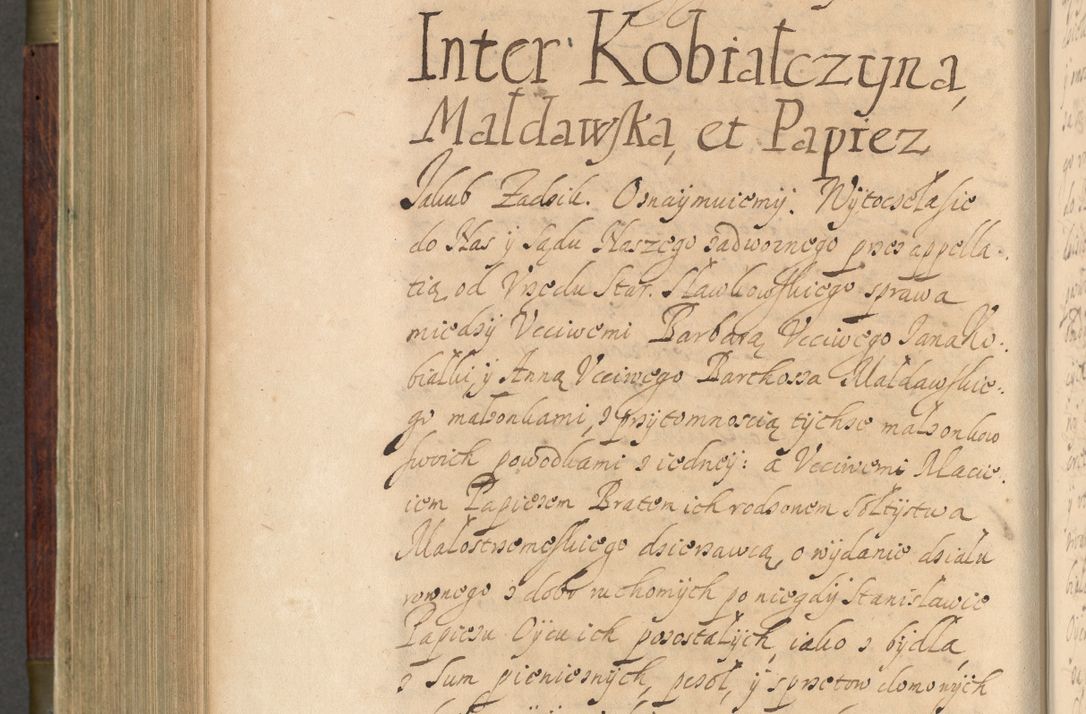 Inter Kobiałczyną
Małdawską et Papiez
Jakub Zadzik. Oznaymuiemy. Wytoczeła sie
do Nas y Sądu Naszego zadwornego przez appella-
tią od Vrzedu Star. Sławkowskiego sprawa
miedzy Vcciwemi Barbarą Vcciwego Jana Ko-
białki, y Anną Vcciwego Barthosza Małdawskie-
go małzonkami, z przytomnoscią tychze małzonkow
swoich powodkami z iedney: a Vcciwemi Macie-
iem Papiezem Bratem ich rodzonem sołtystwa
Małostzemeskiego dzierzawcą, o wydanie działu
rownego z dobr ruchomych po niegdy Stanisławie
Papiezu Oycu ich pozostałych, iako z bydła,
z Sum pienieznych, pszoł, y sprzetow domowych